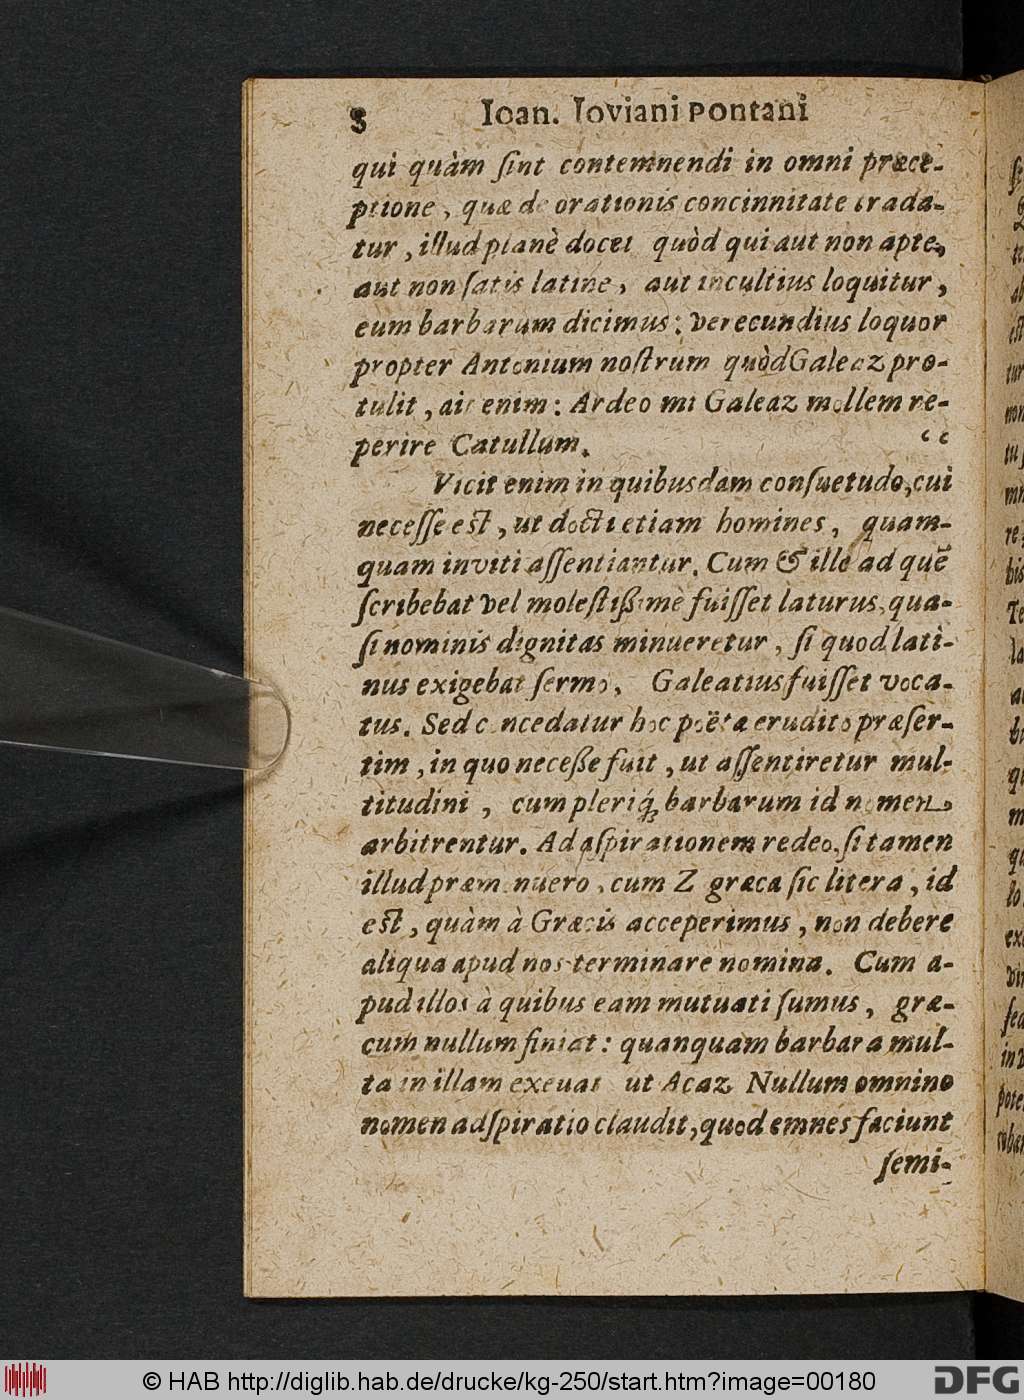 8 Ioan. Ioviani Pontani
qui quàm ſint contemnendi in omni præce-
ptione, quæ de orationis concinnitate trada-
tur, illud planè docet quòd qui aut non apte,
aut non ſatis latine, aut incultius loquitur,
eum barbarum dicimus: verecundius loquor
propter Antonium noſtrum quòd Galeaz pro-
tulit, ait enim: Ardeo mi Galeaz mollem re-
perire Catullum.
Vicit enim in quibusdam conſuetudo, cui
neceſſe eſt, ut docti etiam homines, quam-
quam inviti aſſentiantur. Cum & ille ad quē
ſcribebat vel moleſtißimè fuiſſet laturus, qua-
ſi nominis dignitas minueretur, ſi quod lati-
nus exigebat ſermo, Galeatius fuiſſet voca-
tus. Sed concedatur hoc poëta erudito præſer-
tim, in quo neceße fuit, ut aſſentiretur mul-
titudini, cum pleriq́; barbarum id nomen
arbitrentur. Ad aſpirationem redeo, ſi tamen
illud præmonuero, cum Z græca ſic litera, id
eſt, quàm à Græcis acceperimus, non debere
aliqua apud nos terminare nomina. Cum a-
pud illos à quibus eam mutuati ſumus, græ-
cum nullum finiat: quanquam barbara mul-
ta in illam exeuat ut Acaz Nullum omnino
nomen adſpiratio claudit, quod emnes faciunt
ſemi-
© HAB http://diglib.hab.de/drucke/kg-250/start.htm?image=00180
DFG